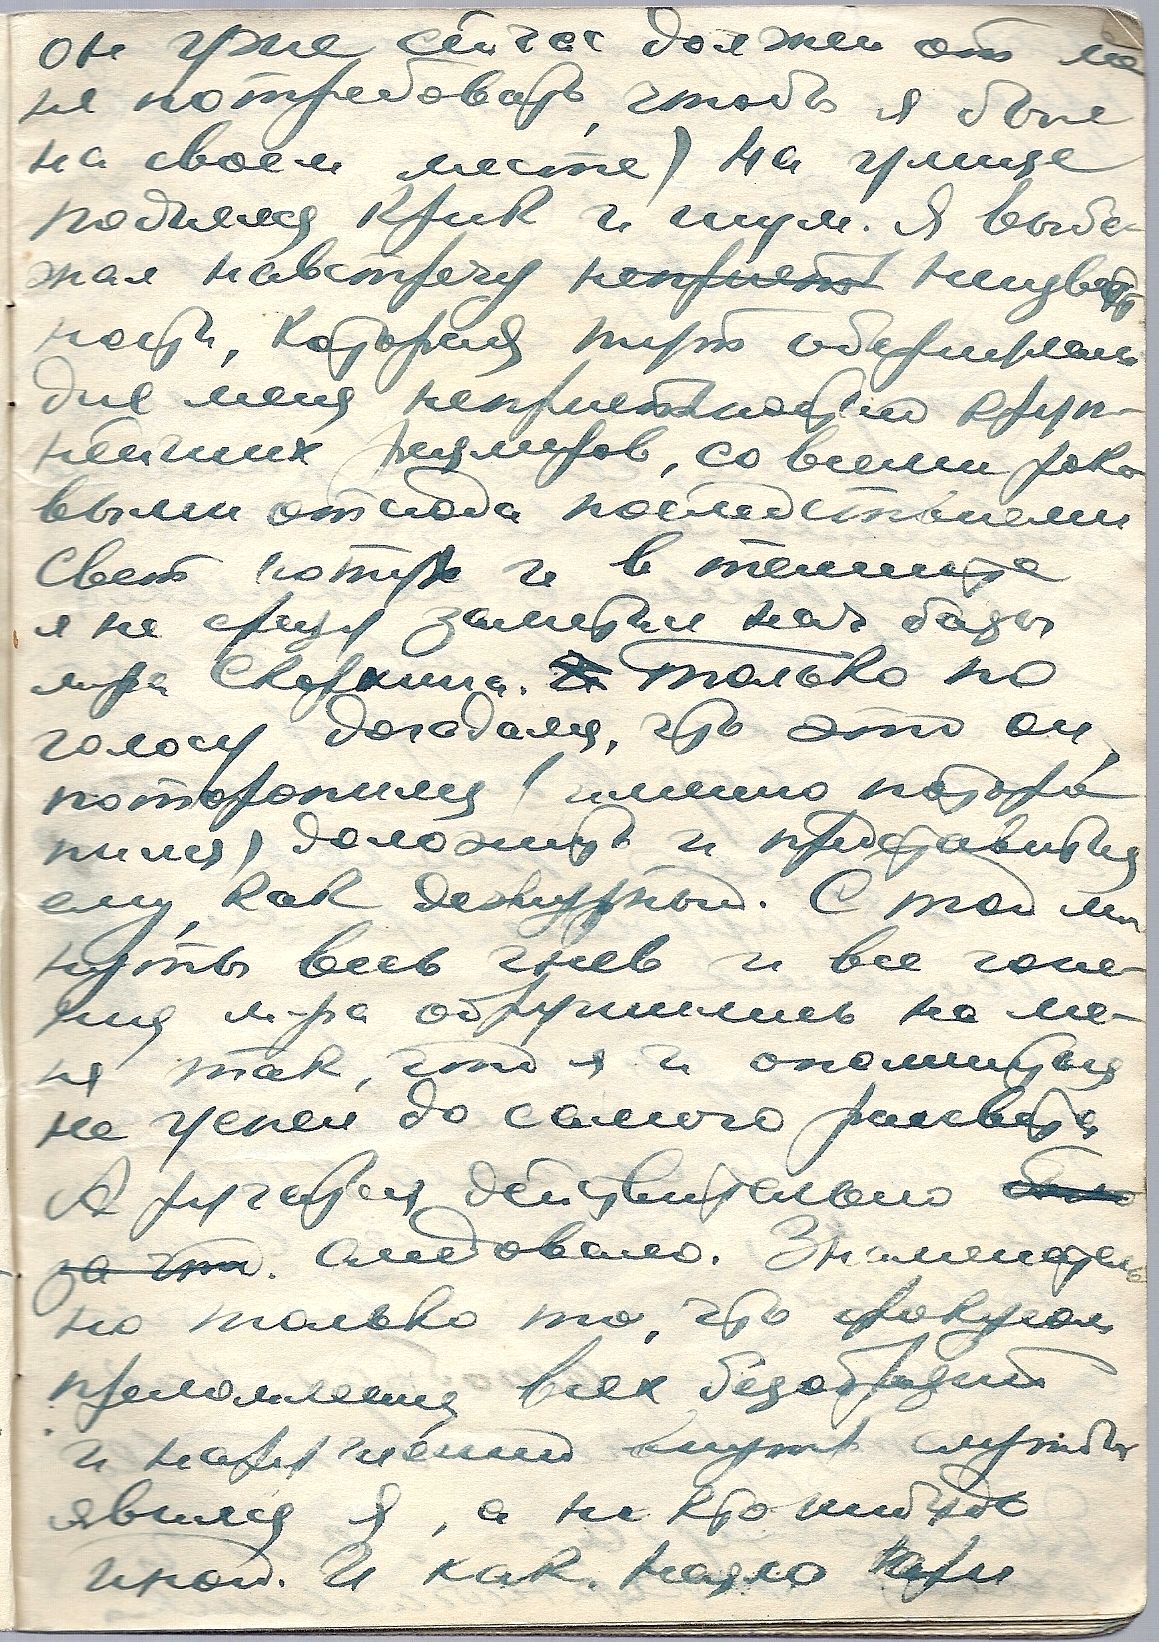 он уже сейчас должен от ме
ня потребовать, чтобы я был
на своем месте) На улице
поднялся крик и шум. Я выбе-
жал навстречу неприят неизвест
ности, которая тут обернулась
для меня неприятностью круп-
нейших размеров, со всеми роко
выми отсюда последствиями
Свет потух и в темноте
я не сразу заметил нач базы
м-ра Скоркина. Я только по
голосу догадался, что это он,
поторопился (именно поторо
пился) доложить и представиться
ему, как дежурный. С той ми
нуты весь гнев и все гоне-
ния м-ра обрушились на ме-
ня так, что я и опомниться
не успел до самого рассвета
А ругаться действительно было
за что. следовало. Знаменатель
но только то, что фокусом
преломления всех безобразий
и нарушений внутр службы
явился я, а не кто нибудь
иной. И как. надо при